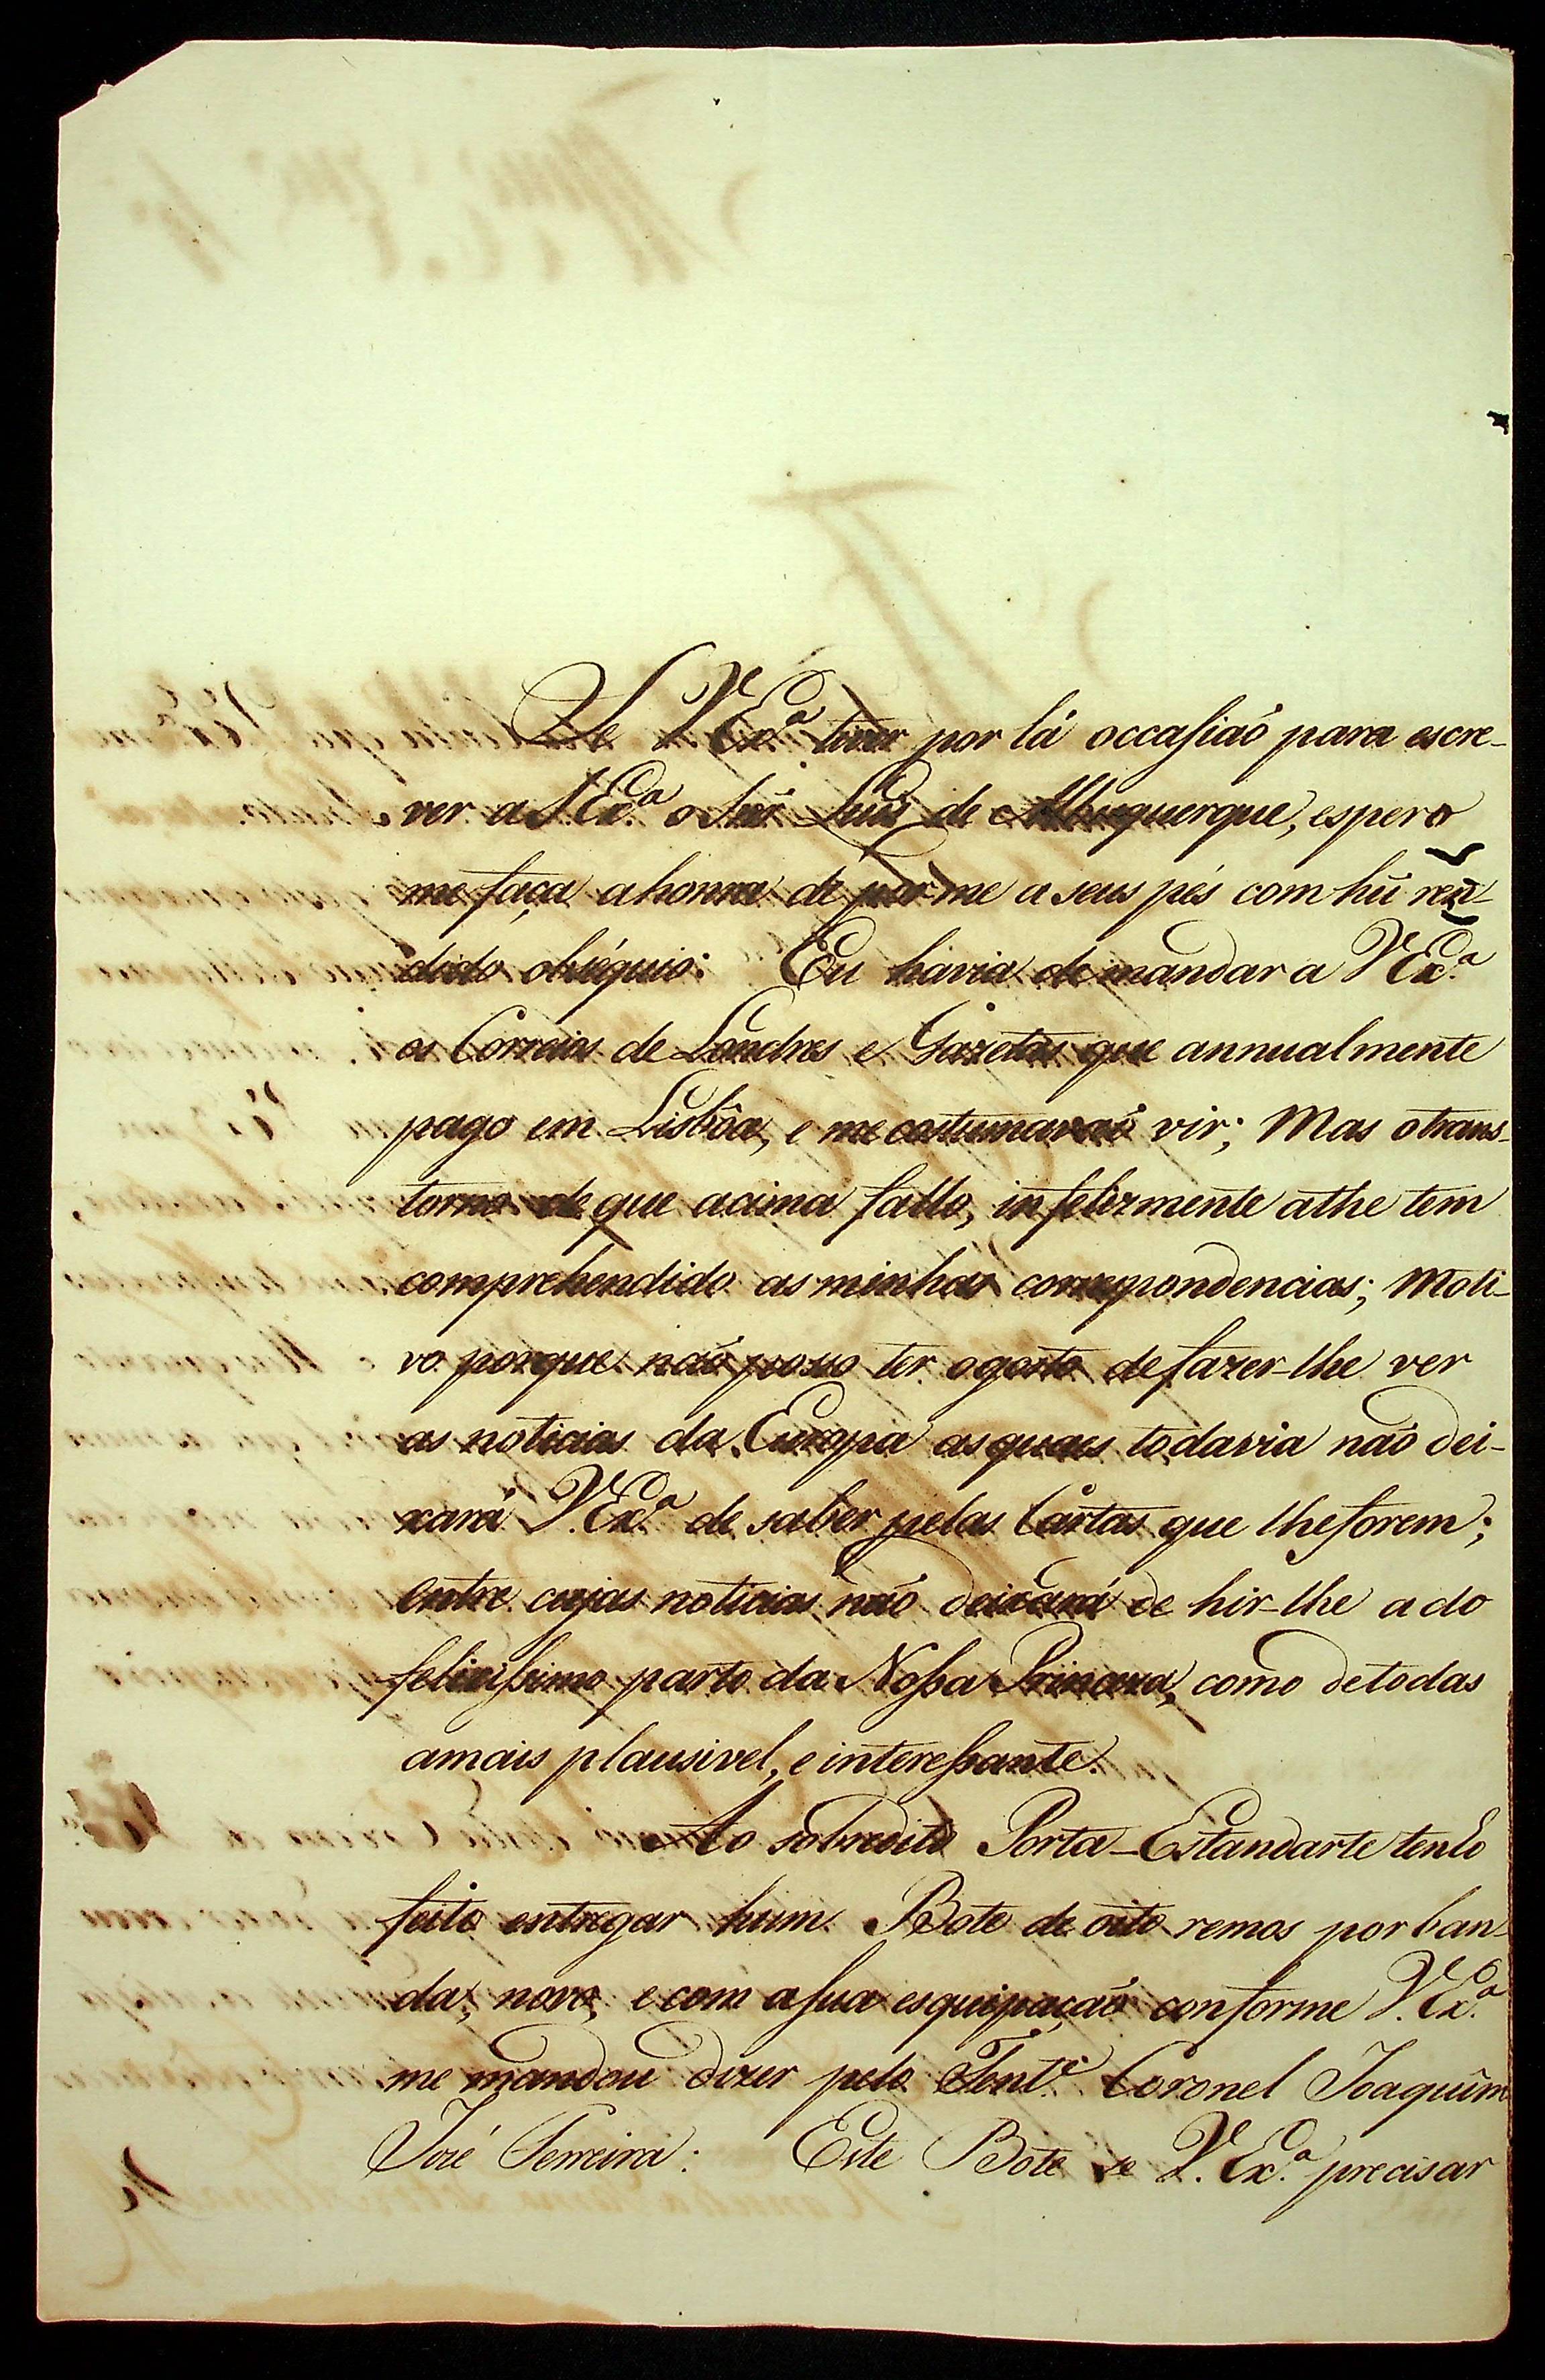 Se V Ex.ª tiver por lá occasiaó para escre-
ver a S.Ex.ª o Snr̃ Luis de Albuquerque, espero
me faça a honra de pôr-me a seus pés com hũ ren-
dido obséquio: Eu havia de mandar a V Ex.ª
os Correios de Londres e Gazetas que annualmente
pago em Lisbôa, e me costumavaó vir; Mas o trans-
torno de que acima fallo, infelizmente athe tem
comprehendido as minhas correspondencias; Moti-
vo porque naó posso ter o gosto de fazer-lhe ver
as noticias da Europa as quaes todavia naó dei-
xará V.Ex.ª de saber pelas Cartas que lhe forem;
entre cujas noticias naó deixará de hir-lhe a do
felicissimo parto da Nossa Princeza, como de todas
a mais plausivel, e interessante.
Ao sobredito Porta-Estandarte tenho
feito entregar hum Bote de oito remos por ban-
da, novo, e com a sua esquipaçaó conforme V.Ex.ª
me mandou dizer pelo Tent.e Coronel Joaquim
José Ferreira: Este Bote se V.Ex.ª precisar